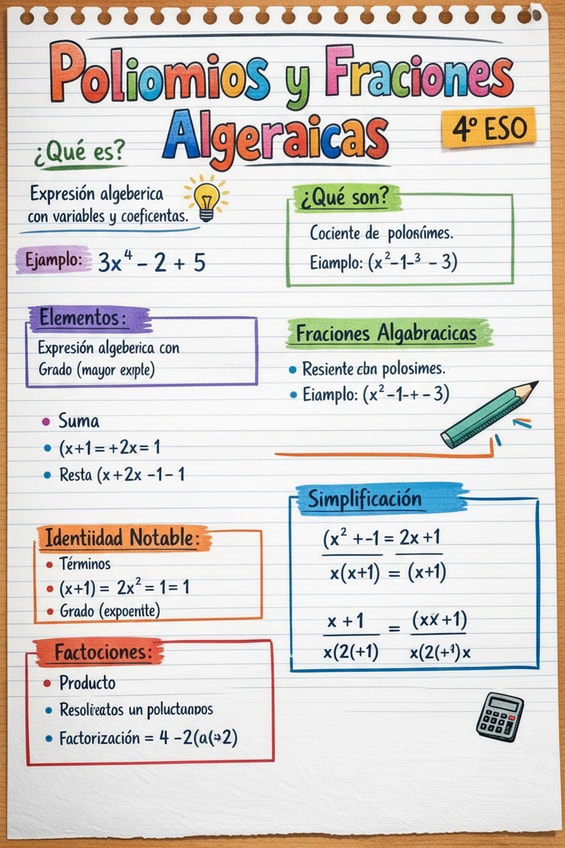 Poliomios y Fraciones
Algeraicas
4º ESO
¿Qué es?
Expresión algeberica
con variables y coeficentas.
Ejamplo: 3x⁴ – 2 + 5
Elementos:
Expresión algeberica con
Grado (mayor exple)
• Suma
• (x+1 = +2x = 1
• Resta (x +2x –1 – 1
Identiidad Notable:
• Términos
• (x+1) = 2x² = 1 = 1
• Grado (expoente)
Factociones:
• Producto
• un
• Factorización = 4 –2(a(
¿Qué son?
Cociente de polonímes.
Eiamplo: (x²–1–³ – 3)
Fraciones Algabracicas
• Resiente cbn polosimes.
• Eiamplo: (x²–1–+ – 3)
Simplificación
(x² +-1 = 2x +1
x(x+1) = (x+1)
x + 1 = (xx+1)
x(2(+1) x(2(+¹)x